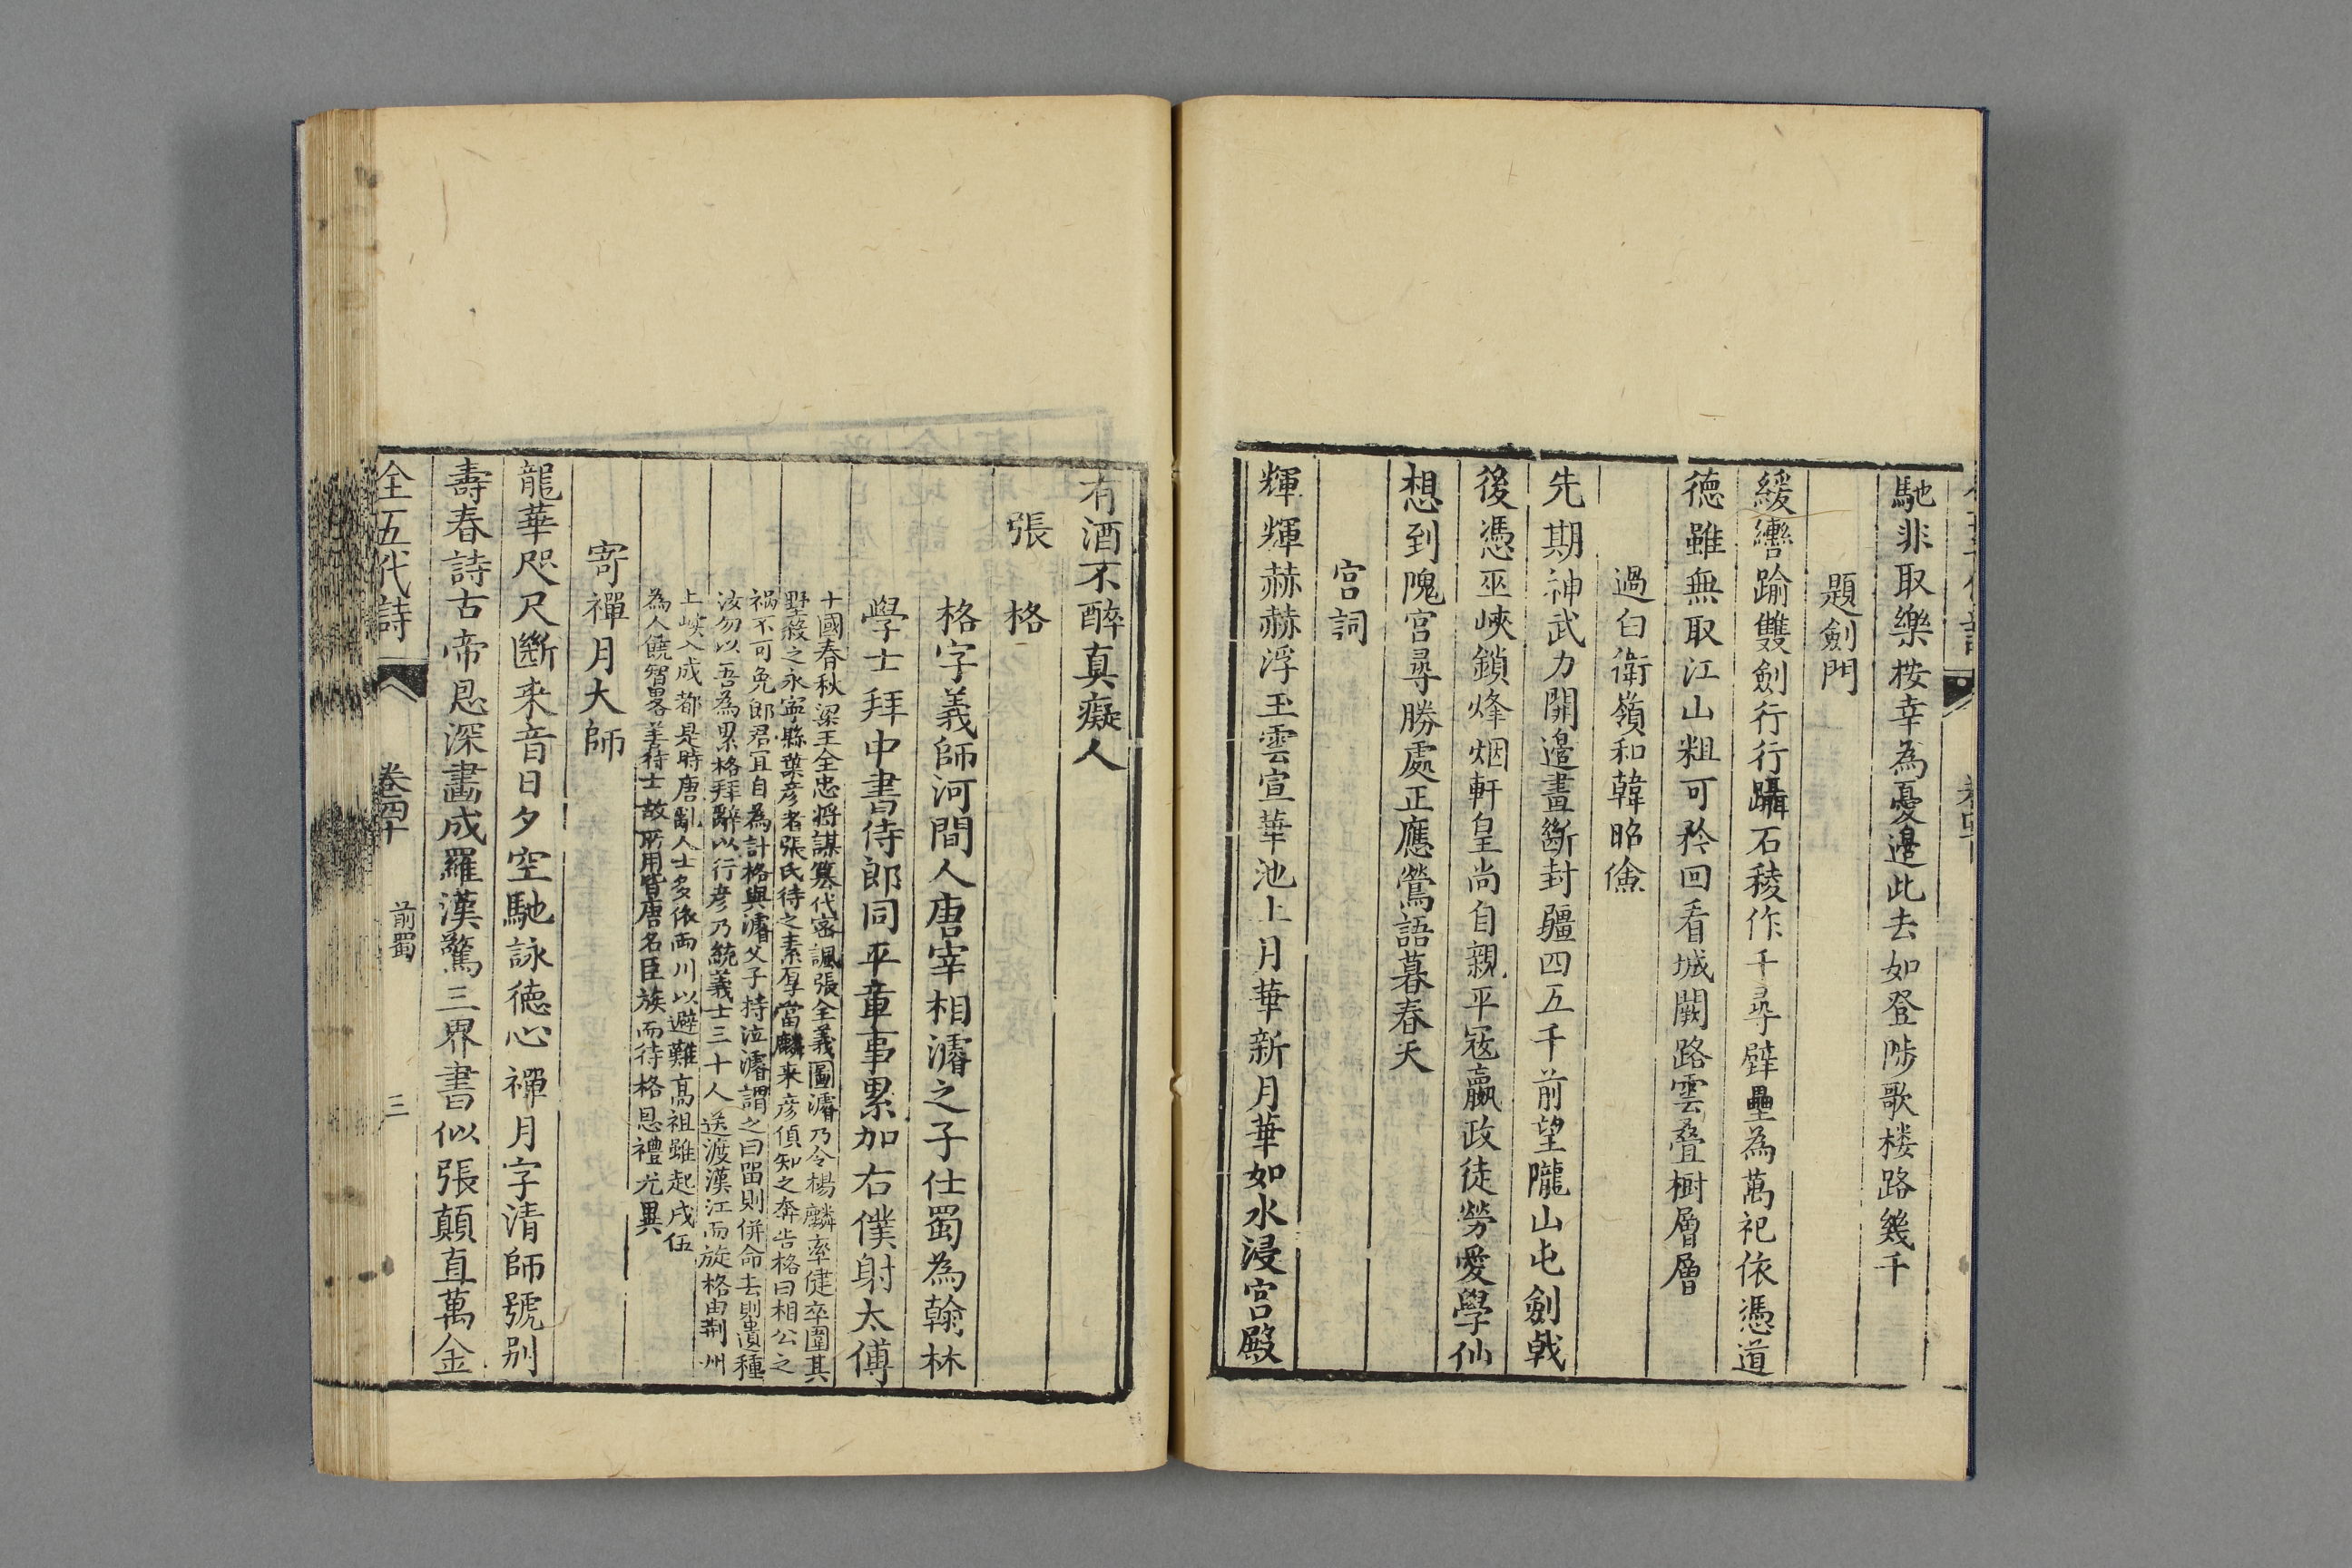 馳非取樂按幸為憂邉此去如登陟歌楼路幾千
題劍門
緩轡踰雙劍行行躡石稜作千尋壁壘為萬祀依憑道
德雖無取江山粗可矜回看城闕路雲叠樹層層
過白衛嶺和韓昭儉
先期神武力開邉畫斷封疆四五千前望隴山屯劍戟
後憑巫峽鎖烽烟軒皇尚自親平寇嬴政徒勞愛學仙
想到隗宮尋勝處正應鶯語暮春天
宮詞
輝輝赫赫浮玉雲宣華池上月華新月華如水浸宮殿
有酒不醉真癡人
張格
格字義師河間人唐宰相濬之子仕蜀為翰林
學士拜中書侍郎同平章事累加右僕射太傅
十國春秋梁王全忠將謀簒代密諷張全義圖濬乃令楊麟率健卒圍其
墅殺之永寧縣葉彦者張氏待之素厚當麟来彦偵知之奔告格曰相公之
禍不可免郎君宜自為計格與濬父子持泣濬謂之曰留則併命去則遺種
汝勿以吾為累格拜辭以行彦乃統義士三十人送渡漢江而旋格由荆州
上峽入成都是時唐亂人士多依兩川以避難高祖雖起戌伍
為人饒智畧善待士故所用皆唐名臣族而待格恩禮尤異
寄禪月大師
龍華咫尺斷来音日夕空馳詠德心禪月字清師號别
壽春詩古帝恩深畵成羅漢驚三界書似張顛直萬金
全五代詩 卷四十 前蜀 三